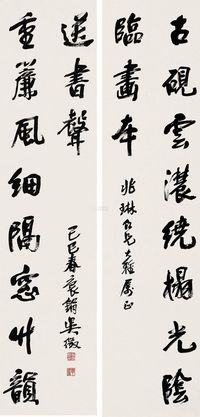 古硯雲濃繞榻光陰
臨畫本
兆琳仁兄大雅屬正
重簾風細隔窗竹韻
送書聲
己巳春袌鋗吳徵